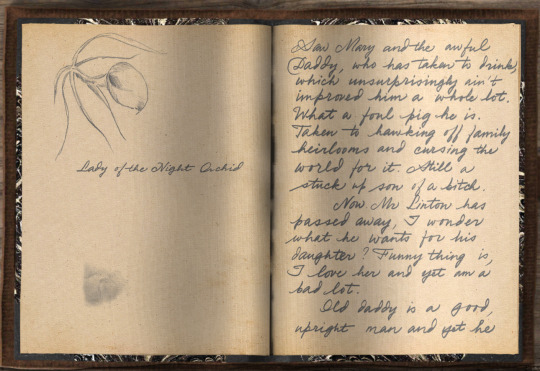 Lady of the Night Orchid
Saw Mary and the awful
Daddy, who has taken to drink,
which unsurprisingly ain't
improved him a whole lot.
What a foul pig he is.
Taken to hawking off family
heirlooms and cursing the
world for it. Still a
stuck up son of a bitch.
Now Mr Linton has
passed away, I wonder
what he wants for his
daughter? Funny thing is,
I love her and yet am a
bad lot.
Old daddy is a good,
upright man and yet he